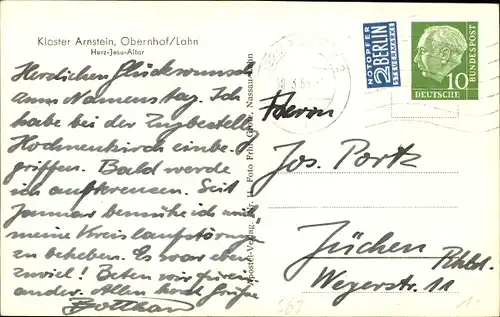 Kloster Arnstein, Obernhof/Lahn
Herz-Jesu-Altar
Herzlichen Glückwunsch
zum Namenstag. Ich
habe bei der Zugbestellg
Hochneukirch einbe-
griffen. Bald werde
ich aufkreuzen. Seit
Januar bemühe ich mich
meine Kreislaufstörung
zu beheben. Es war eben
zuviel! Beten wir fürein-
ander. Allen herzl Grüße
NOTOPFER
2 BERLIN
STEUERMARKE
10
DEUTSCHE
BUNDESPOST
Herrn
Jos. Portz
Jüchen
Rhld.
Weyerstr. 11
Verlag, Nr. 11 Foto Fritz Nassau/Lahn
363